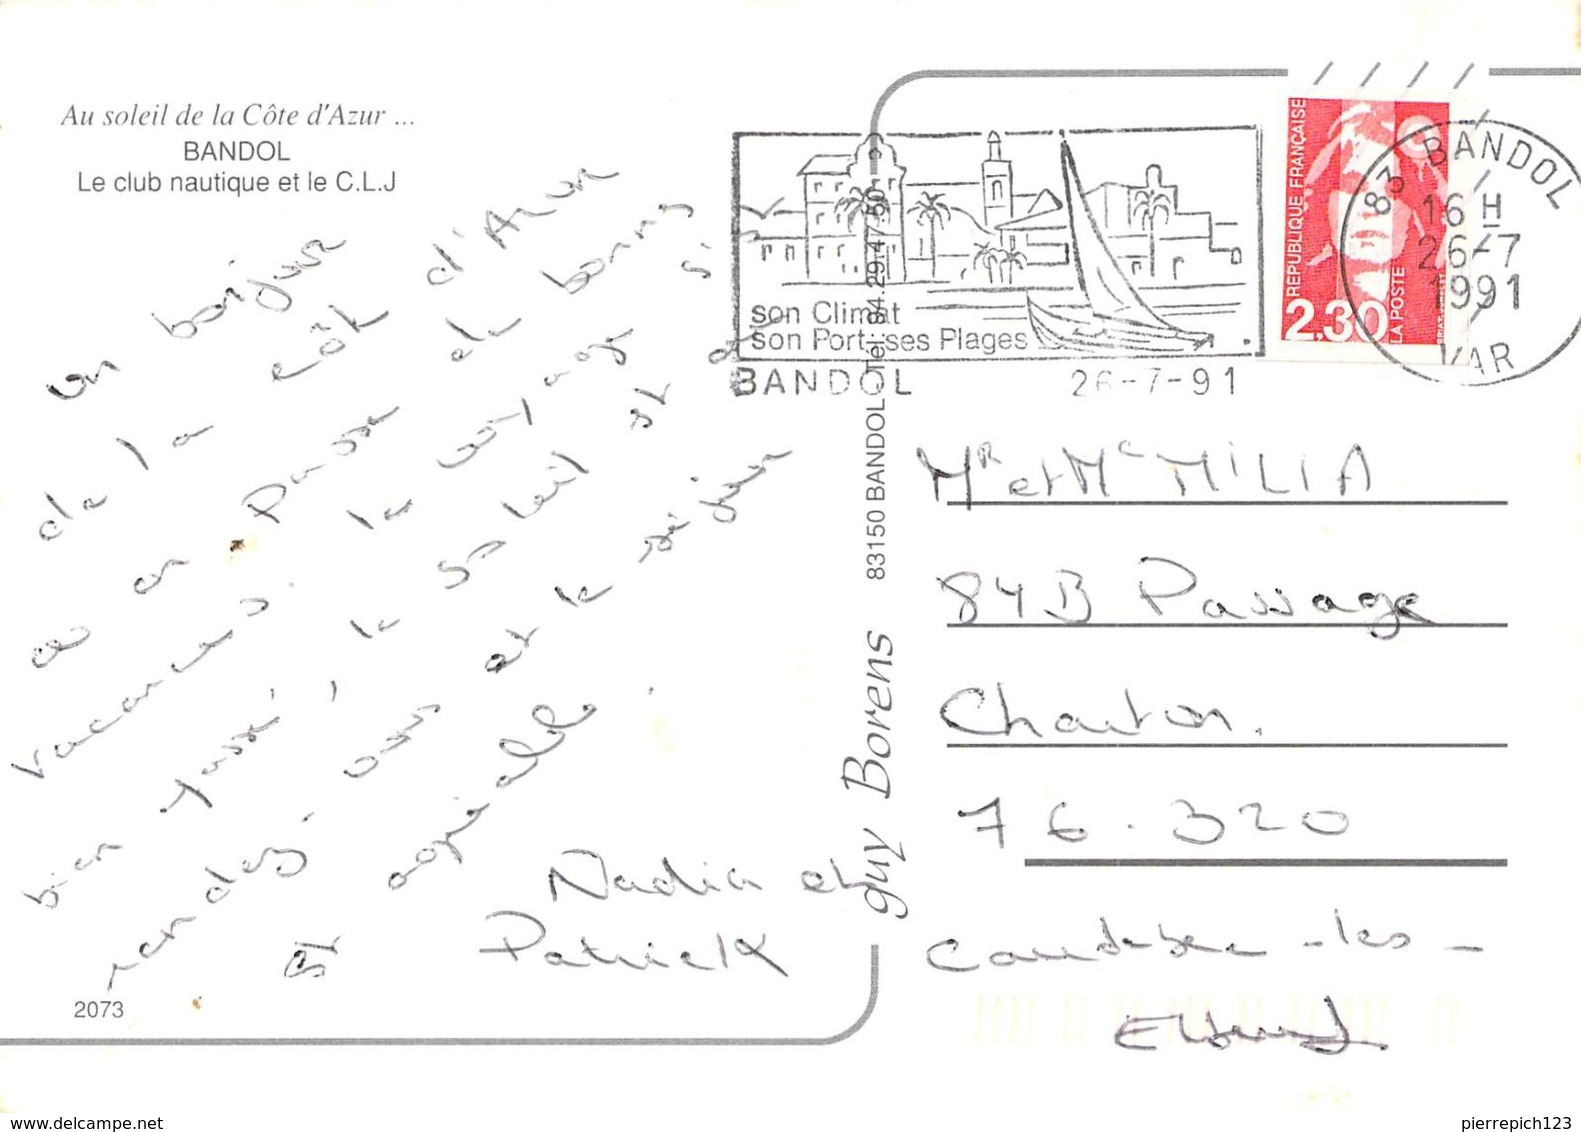 Au soleil de la Côte d'Azur ...
BANDOL
Le club nautique et le C.L.J
un bonjour
de la côt d'Azur
où on Passe de bonnes
vacances le voyage s'i
bien passé, le soleil st a
rendez. vous et le séjour
st agréable.
Nadia et
Patrick
2073
guy Borens 83150 BANDOL Tél. 94.29.47.50
son Climat
son Port ses Plages
BANDOL 26-7-91
REPUBLIQUE FRANÇAISE
2,30
LA POSTE
83 BANDOL
16 H
26-7
1991
VAR
Mr et Me MiLIA
84B Passage
Charton.
76.320
Caudebec-les-
Elbeuf
www.delcampe.net
pierrepich123